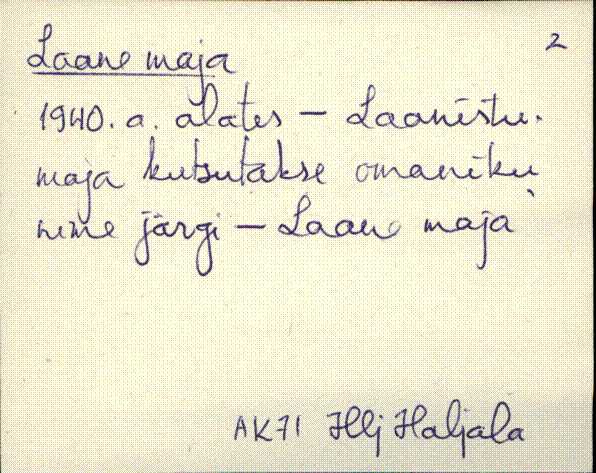 Laane maja 2
1940. a. alates – Laanistu.
maja kutsutakse omaniku
nime järgi – Laane maja
AK71 Hlj Haljala